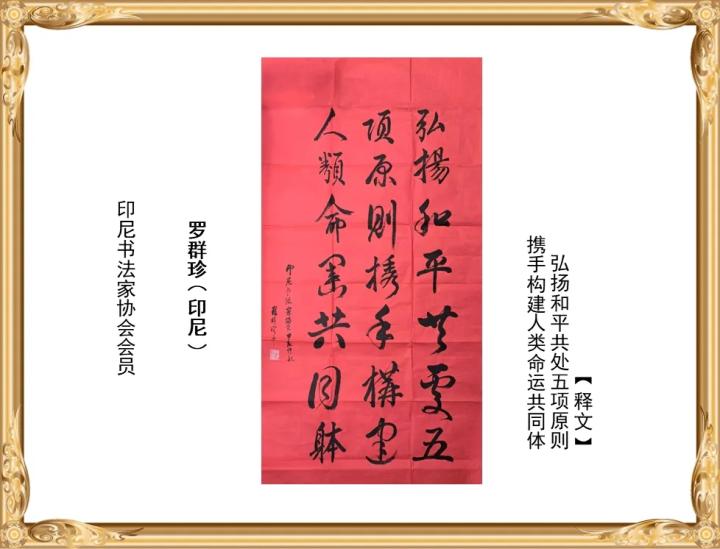 【释文】
弘扬和平共处五项原则
携手构建人类命运共同体
弘揚和平共處五
項原則携手構建
人類命運共同体
罗群珍（印尼）
印尼书法家协会会员